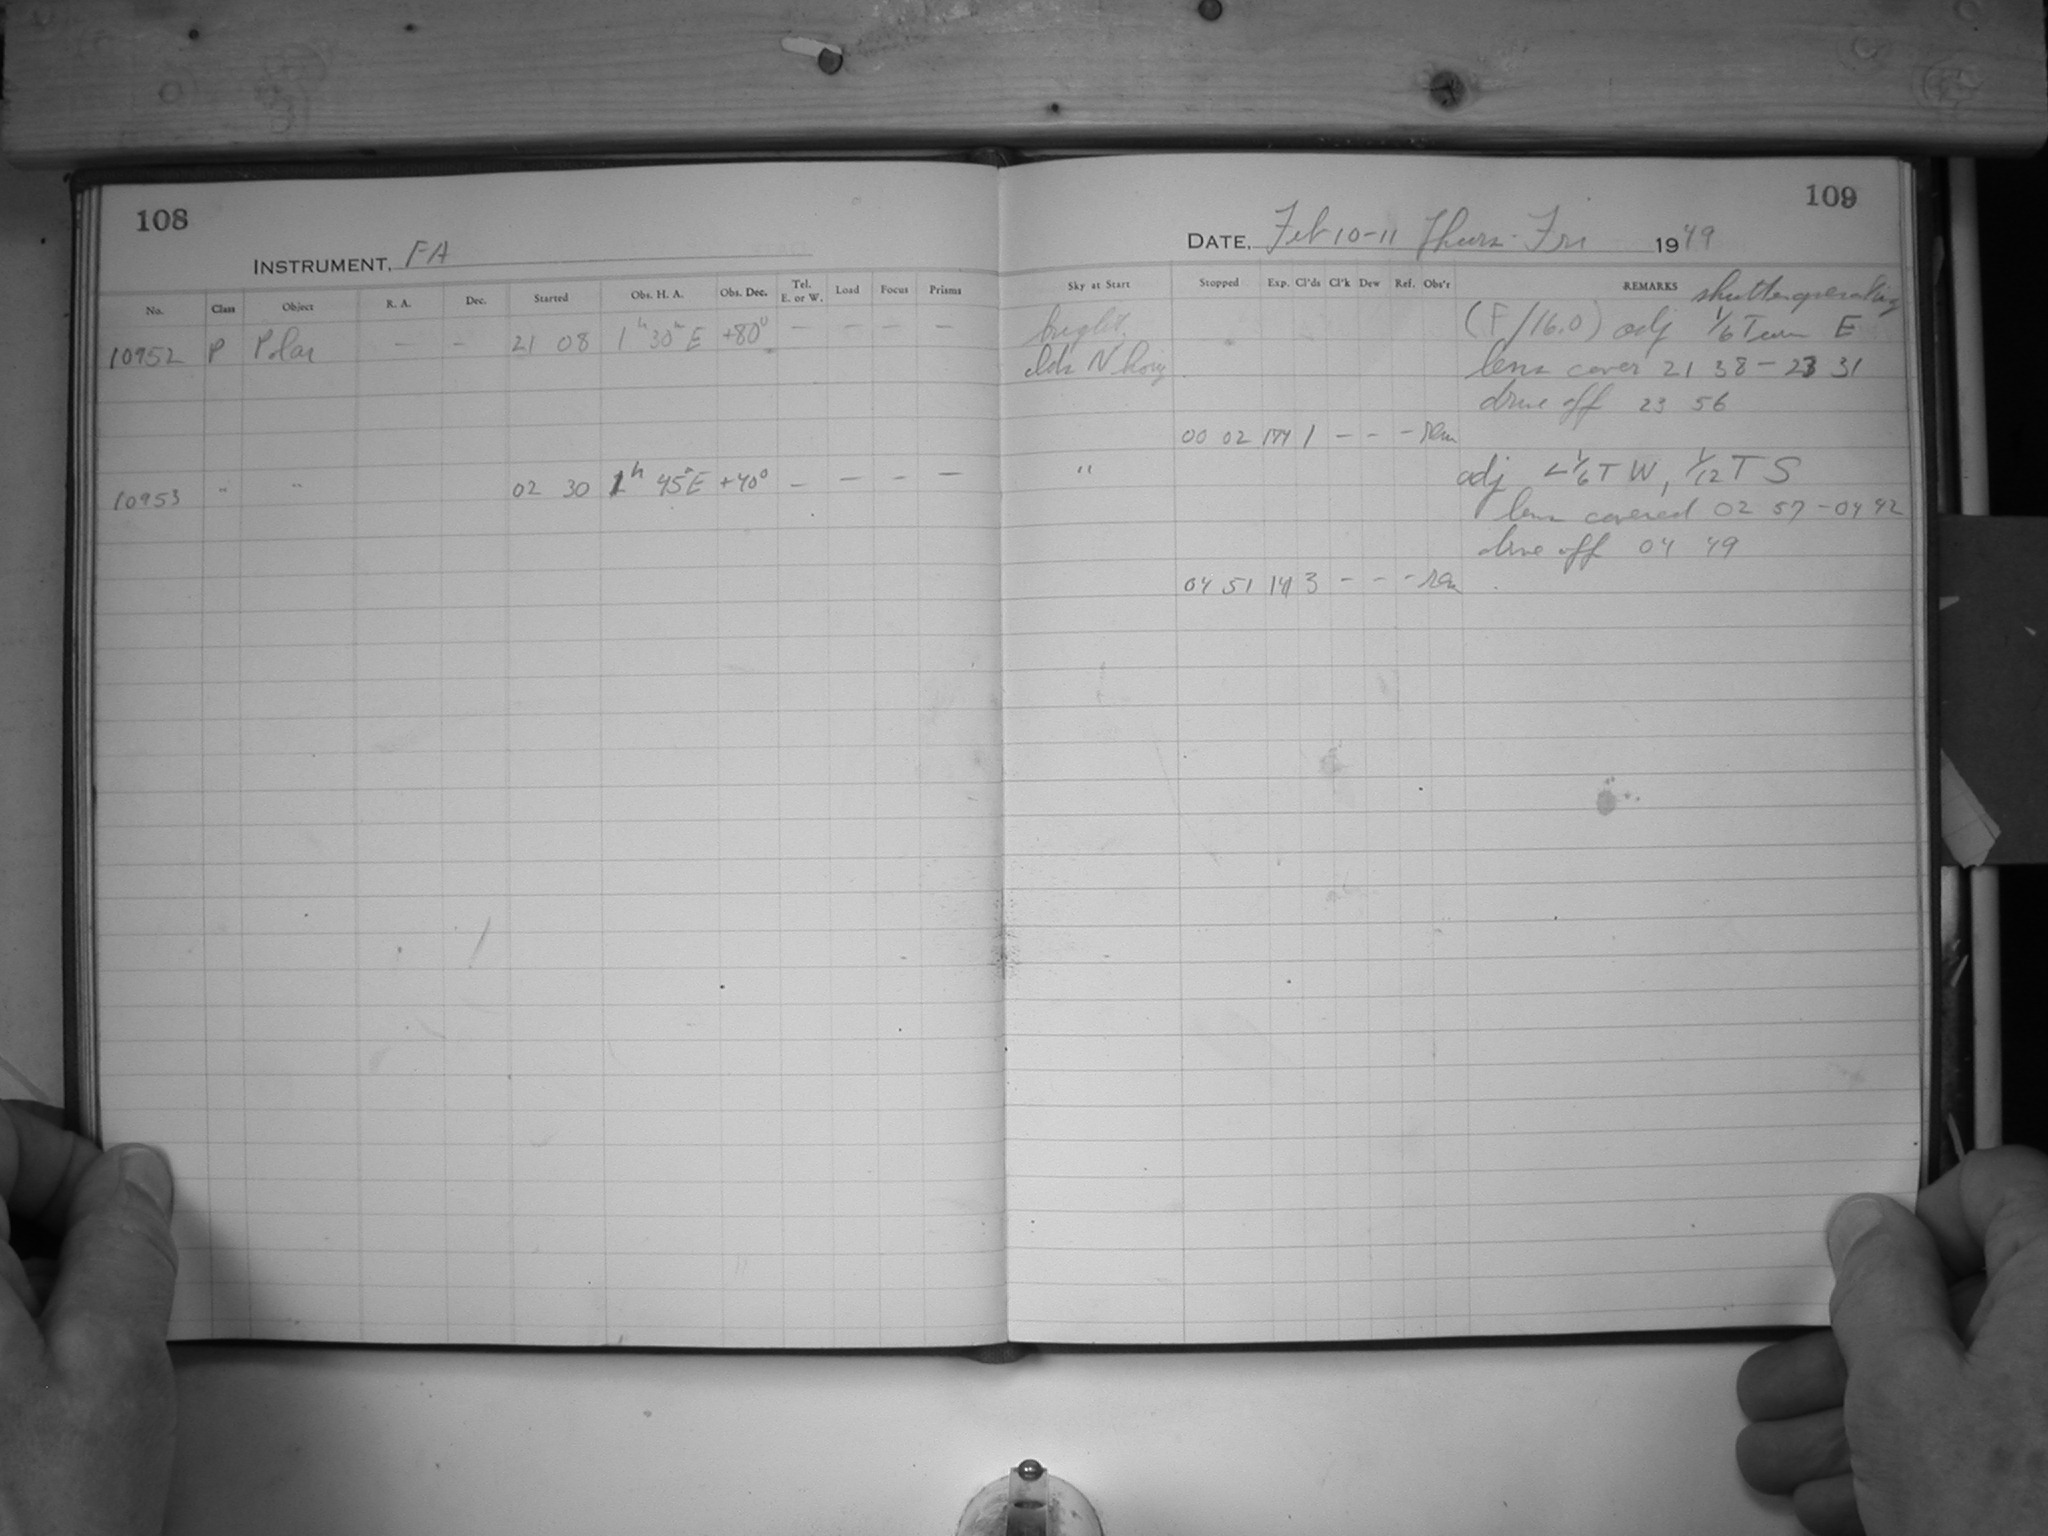 108
INSTRUMENT, FA
No. Class Object R. A. Dec. Started Obs. H. A. Obs. Dec. Tel. E. or W. Load Focus Prisms
10952 P Polar – – 21 08 1h 30m E +80° – – – –
10953 " " 02 30 1h 45m E +40° – – – –
109
DATE, Feb 10-11 Thurs-Fri 1949
Sky at Start Stopped Exp. Cl'ds Cl'k Dew Ref. Obs'r REMARKS shutter operating
bright (F/16.0) adj 1/6 Turn E
clds N horiz lens cover 21 38 – 23 31
drive off 23 56
00 02 174 1 – – – rem
" adj <1/6 T W, 1/12 T S
lens covered 02 57 – 04 42
drive off 04 49
04 51 141 3 – – – rem